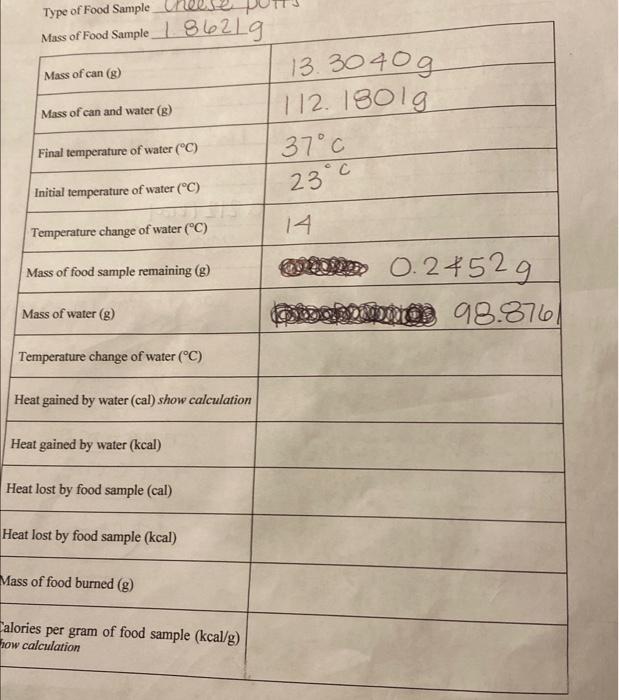 Type of Food Sample Cheese puffs
Mass of Food Sample 1.8621g
Mass of can (g) 13.3040g
Mass of can and water (g) 112.1801g
Final temperature of water (°C) 37°C
Initial temperature of water (°C) 23°C
Temperature change of water (°C) 14
Mass of food sample remaining (g) 0.2452g
Mass of water (g) 98.8761
Temperature change of water (°C)
Heat gained by water (cal) show calculation
Heat gained by water (kcal)
Heat lost by food sample (cal)
Heat lost by food sample (kcal)
Mass of food burned (g)
Calories per gram of food sample (kcal/g)
how calculation